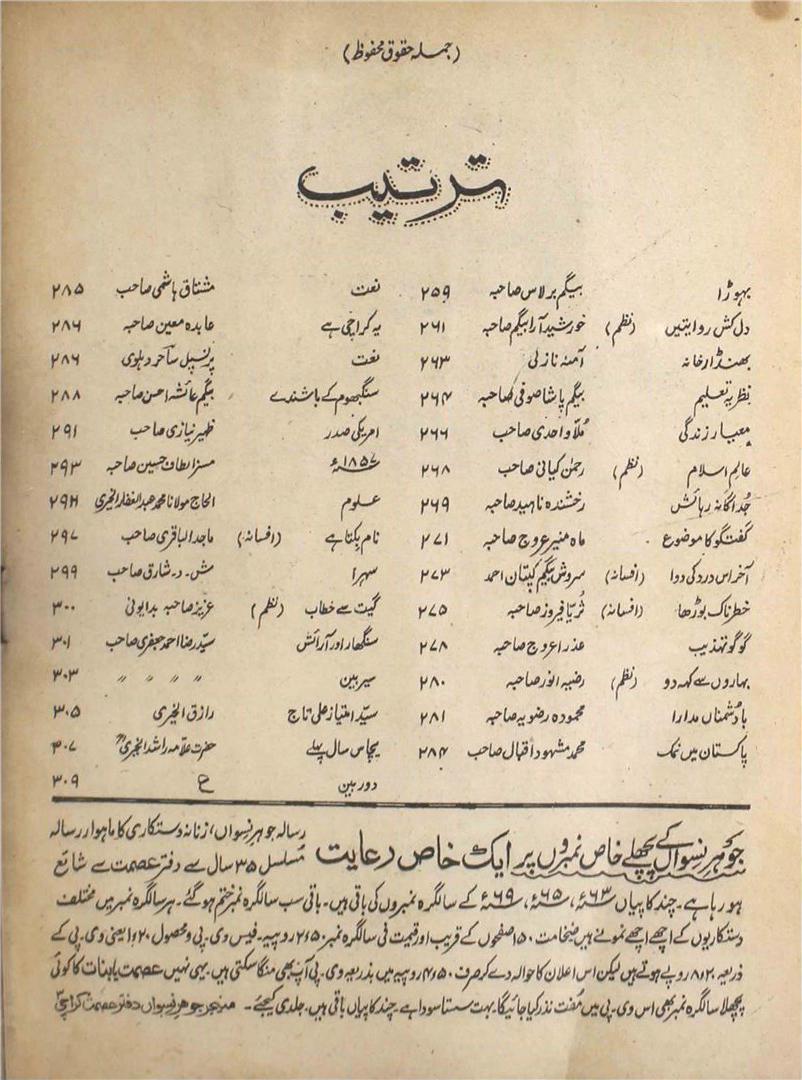 (جملہ حقوق محفوظ)
ترتیب
بہوڑا بیگم برلاس صاحبہ ۲۵۹
دل کش روایتیں (نظم) خورشید آرا بیگم صاحبہ ۲۶۱
بھنڈار خانہ آمنہ نازلی ۲۶۳
نظریہ تعلیم بیگم پاشا صوفی صاحبہ ۲۶۴
معیار زندگی مُلّا واحدی صاحب ۲۶۶
عالمِ اسلام (نظم) رحمٰن کیانی صاحب ۲۶۸
جُداگانہ رہائش رخشندہ ناہید صاحبہ ۲۶۹
گفتگو کا موضوع ماہ منیر عروج صاحبہ ۲۷۱
آخر اس درد کی دوا (افسانہ) سروش بیگم کپتان احمد ۲۷۳
خطرناک بوڑھا (افسانہ) ثُریّا فیروز صاحبہ ۲۷۵
گوگو تہذیب عذرا عروج صاحبہ ۲۷۸
بہاروں سے کہہ دو (نظم) رضیہ انور صاحبہ ۲۸۰
بادُشمناں مدارا محمودہ رضویہ صاحبہ ۲۸۱
پاکستان میں نمک محمد مشہود اقبال صاحب ۲۸۴
نعت مشتاق ہاشمی صاحب ۲۸۵
یہ کراچی ہے عابدہ معین صاحبہ ۲۸۶
نعت پرنسپل ساحر دہلوی ۲۸۶
سنگبھوم کے باشندے بیگم عائشہ احسن صاحبہ ۲۸۸
امریکی صدر ظہیر نیازی صاحب ۲۹۱
۱۸۵۷ء مسز الطاف حسین صاحبہ ۲۹۳
علوم الحاج مولانا محمد عبد الغفار الخیری ۲۹۴
نام بِکتا ہے (افسانہ) ماجد الباقری صاحب ۲۹۷
سہرا مش۔د۔شارق صاحب ۲۹۹
گیت سے خطاب (نظم) عزیز صاحبہ بدایونی ۳۰۰
سنگھار اور آرائش سیّد رضا احمد جعفری صاحب ۳۰۱
سیربین 〃 〃 〃 〃 ۳۰۳
سیّد امتیاز علی تاج رازق الخیری ۳۰۵
پچاس سال پہلے حضرت علّامہ راشد الخیریؒ ۳۰۷
دوربین ع ۳۰۹
جوہرِ نسواں کے پچھلے خاص نمبروں پر ایک خاص رعایت
رسالہ جوہرِ نسواں، زنانہ دستکاری کا ماہوار رسالہ
مسلسل ۳۵ سال سے دفتر عصمت سے شائع
ہو رہا ہے۔ چند کاپیاں ۶۳ء، ۶۵ء، ۶۹ء کے سالگرہ نمبروں کی باقی ہیں۔ باقی سب سالگرہ نمبر ختم ہو گئے۔ ہر سالگرہ نمبر میں مختلف
دستکاریوں کے اچھے اچھے نمونے ہیں ضخامت ۱۵۰ صفحوں کے قریب اور قیمت فی سالگرہ نمبر ۲/۵۰ روپیہ۔ فیس وی۔ پی و محصول ۱/۲۰ یعنی وی۔ پی کے
ذریعہ ۸/۲۰ روپے ہوتے ہیں لیکن اس اعلان کا حوالہ دے کر صرف ۴/۵۰ روپیہ میں بذریعہ وی۔ پی آپ بھی منگا سکتی ہیں۔ یہی نہیں عصمت یا بنات کا کوئی
پچھلا سالگرہ نمبر بھی اس وی۔ پی میں مُفت نذر کیا جائیگا۔ بہت سستا سودا ہے۔ چند کاپیاں باقی ہیں۔ جلدی کیجئے۔ منیجر جوہر نسواں دفتر عصمت کراچی ۳